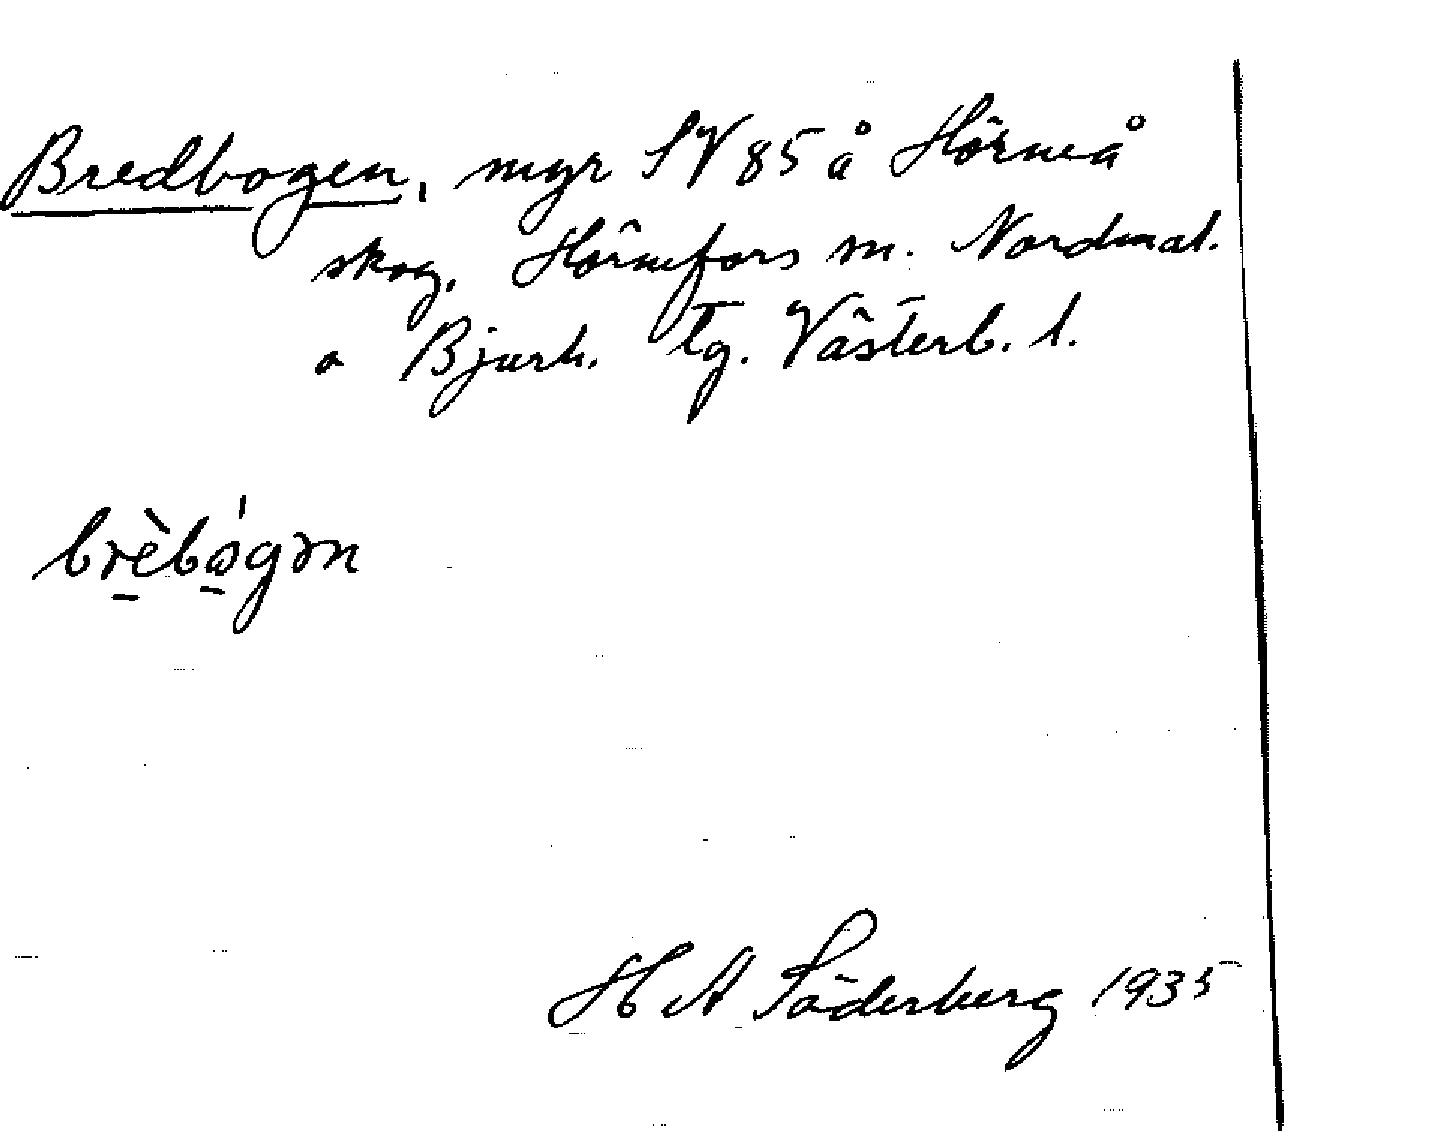 Bredbogen, myr SV 85 å Hörneå
skog. Hörnefors sn. Nordmal.
o Bjurh. tg. Västerb. l.
brèbógən
H A Söderberg 1935